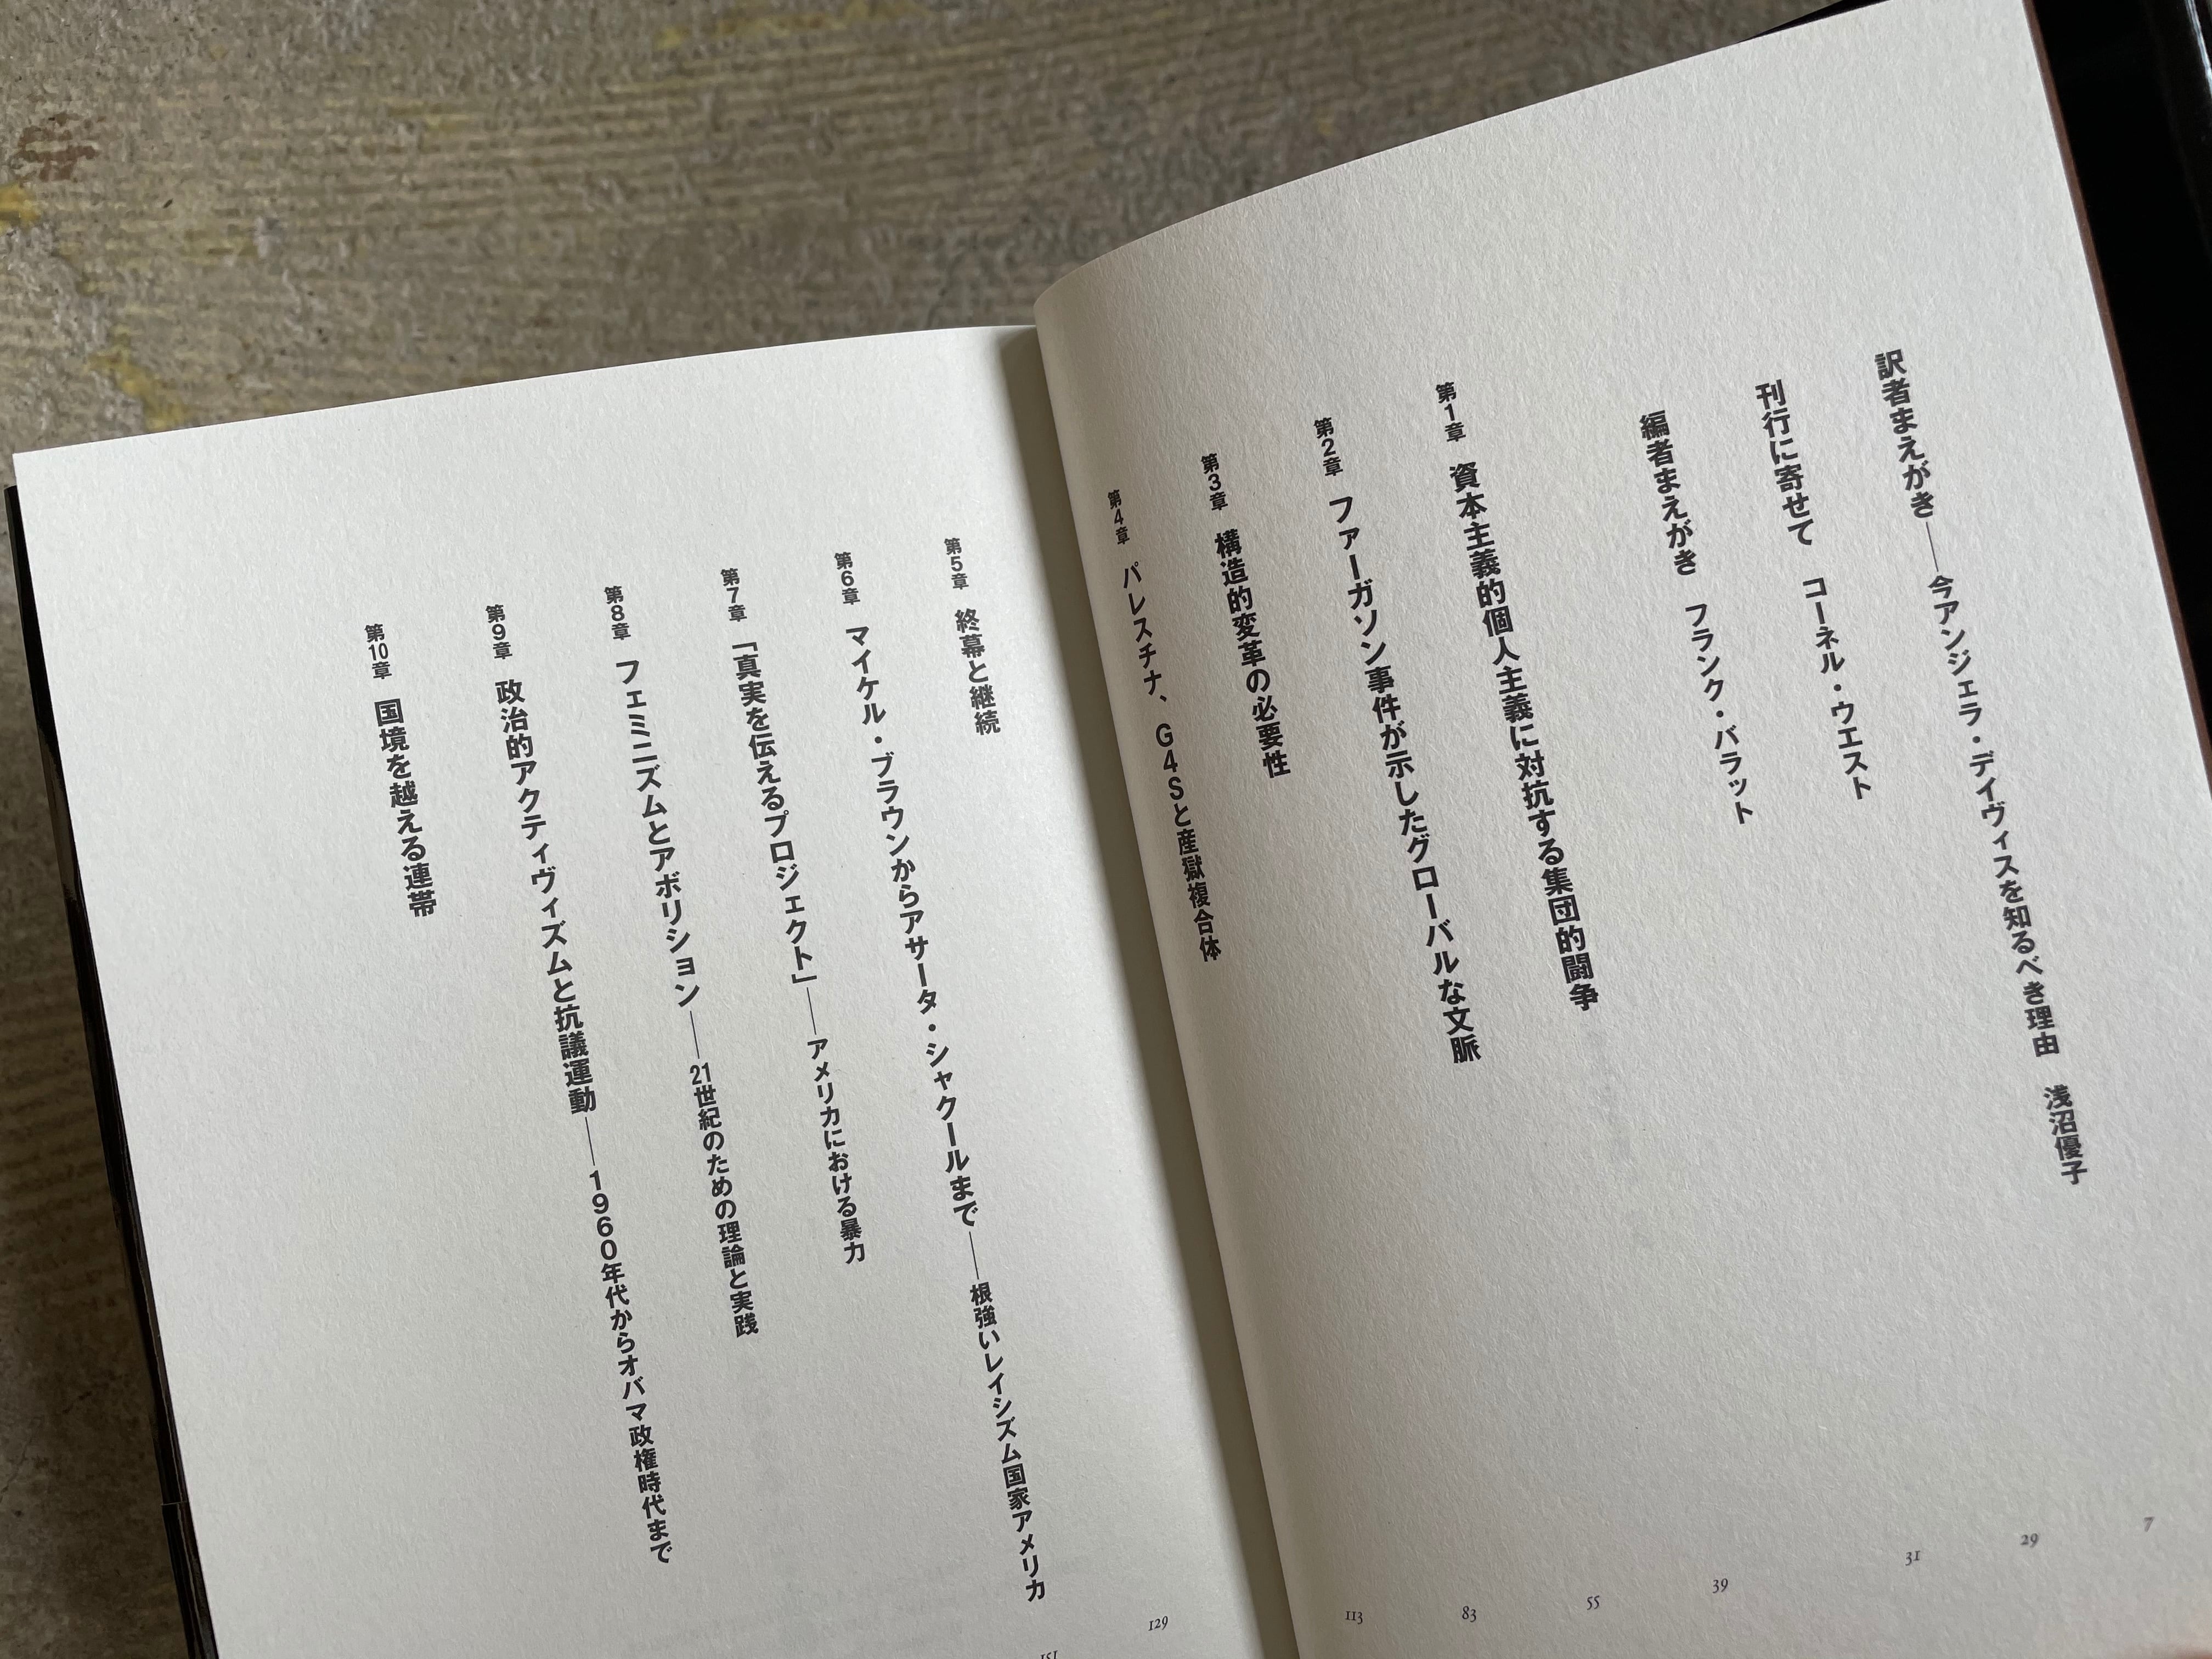 訳者まえがき——今アンジェラ・デイヴィスを知るべき理由 浅沼優子 7
刊行に寄せて コーネル・ウエスト 29
編者まえがき フランク・バラット 31
第1章 資本主義的個人主義に対抗する集団的闘争 39
第2章 ファーガソン事件が示したグローバルな文脈 55
第3章 構造的変革の必要性 83
第4章 パレスチナ、G4Sと産獄複合体 113
第5章 終幕と継続 129
第6章 マイケル・ブラウンからアサータ・シャクールまで——根強いレイシズム国家アメリカ 151
第7章 「真実を伝えるプロジェクト」——アメリカにおける暴力
第8章 フェミニズムとアボリション——21世紀のための理論と実践
第9章 政治的アクティヴィズムと抗議運動——1960年代からオバマ政権時代まで
第10章 国境を越える連帯